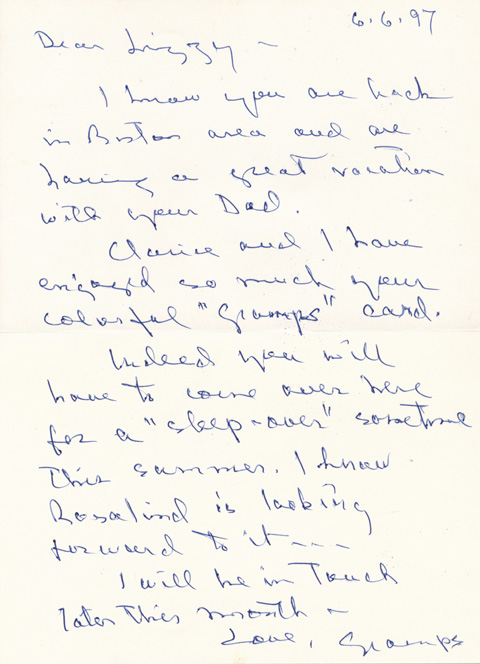 6.6.97
Dear Lizzy -
I know you are back
in Boston area and are
having a great vacation
with your Dad.
Clarice and I have
enjoyed so much your
colorful "Gramps" card.
Indeed you will
have to come over here
for a "sleep-over" sometime
this summer. I know
Rosalind is looking
forward to it - - -
I will be in Touch
later this month -
Love, Gramps